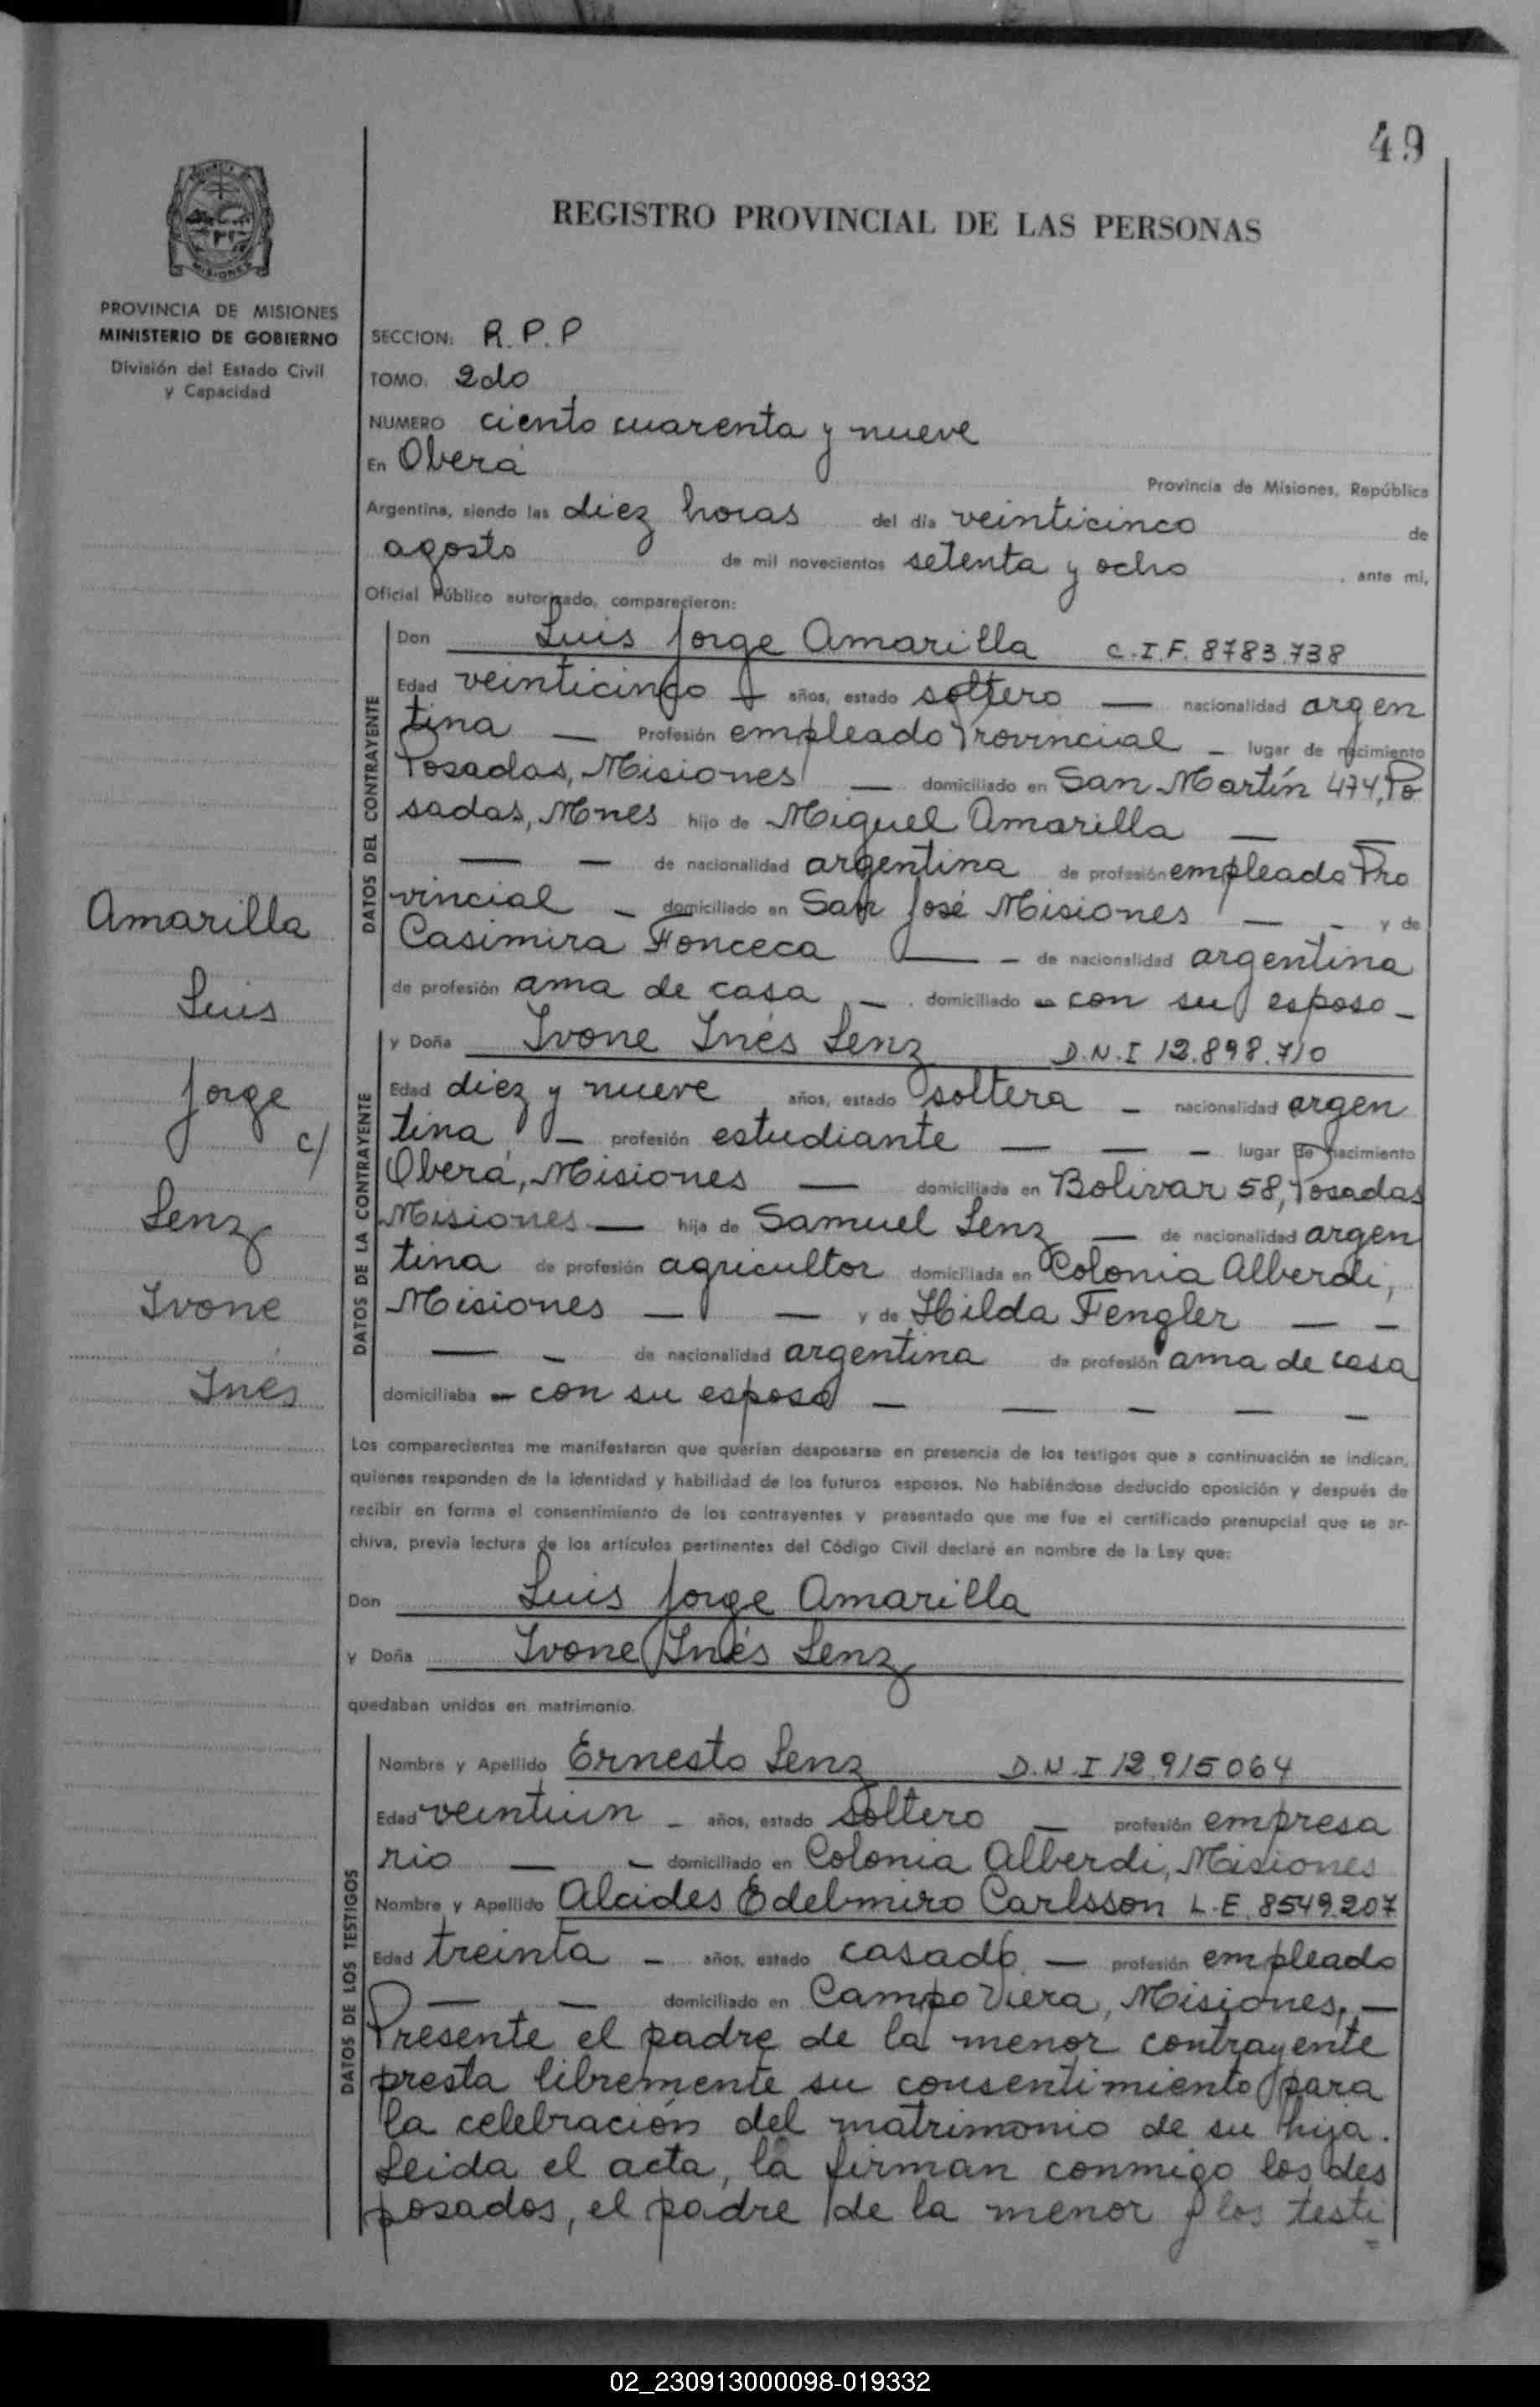 49
REGISTRO PROVINCIAL DE LAS PERSONAS
MISIONES
PROVINCIA DE MISIONES
MINISTERIO DE GOBIERNO
División del Estado Civil
y Capacidad
SECCION: R.P.P
TOMO: 2do
NUMERO ciento cuarenta y nueve
En Oberá Provincia de Misiones, República
Argentina, siendo las diez horas del día veinticinco de
agosto de mil novecientos setenta y ocho, ante mi,
Oficial Público autorizado, comparecieron:
DATOS DEL CONTRAYENTE
Don Luis Jorge Amarilla C.I.F. 8783.738
Edad veinticinco — años, estado soltero — nacionalidad argen
tina — Profesión empleado Provincial — lugar de nacimiento
Posadas, Misiones — domiciliado en San Martín 474, Po
sadas, Mnes hijo de Miguel Amarilla — —
— — de nacionalidad argentina de profesión empleado Pro
vincial — domiciliado en San José Misiones — - y de
Casimira Fonceca — - de nacionalidad argentina
de profesión ama de casa — domiciliado con su esposo —
Amarilla
Luis
Jorge
c/
Lenz
Ivone
Inés
DATOS DE LA CONTRAYENTE
y Doña Ivone Inés Lenz D.N.I 12.898.710
Edad diez y nueve años, estado soltera — nacionalidad argen
tina — profesión estudiante — — - lugar de nacimiento
Oberá, Misiones — domiciliada en Bolivar 58, Posadas
Misiones — hija de Samuel Lenz — de nacionalidad argen
tina de profesión agricultor domiciliada en Colonia Alberdi,
Misiones — — y de Hilda Fengler — -
— - de nacionalidad argentina de profesión ama de casa
domiciliaba con su esposo — — - — -
Los comparecientes me manifestaron que querían desposarse en presencia de los testigos que a continuación se indican,
quienes responden de la identidad y habilidad de los futuros esposos. No habiéndose deducido oposición y después de
recibir en forma el consentimiento de los contrayentes y presentado que me fue el certificado prenupcial que se ar-
chiva, previa lectura de los artículos pertinentes del Código Civil declaré en nombre de la Ley que:
Don Luis Jorge Amarilla
y Doña Ivone Inés Lenz
quedaban unidos en matrimonio.
DATOS DE LOS TESTIGOS
Nombre y Apellido Ernesto Lenz D.N.I 12.915064
Edad veintiun - años, estado soltero — profesión empresa
rio — - domiciliado en Colonia Alberdi, Misiones
Nombre y Apellido Alcides Edelmiro Carlsson L.E. 8549.207
Edad treinta - años, estado casado — profesión empleado
— — domiciliado en Campo Viera, Misiones, —
Presente el padre de la menor contrayente
presta libremente su consentimiento para
la celebración del matrimonio de su hija.
Leida el acta, la firman conmigo los des
posados, el padre de la menor y los testi
02_230913000098-019332